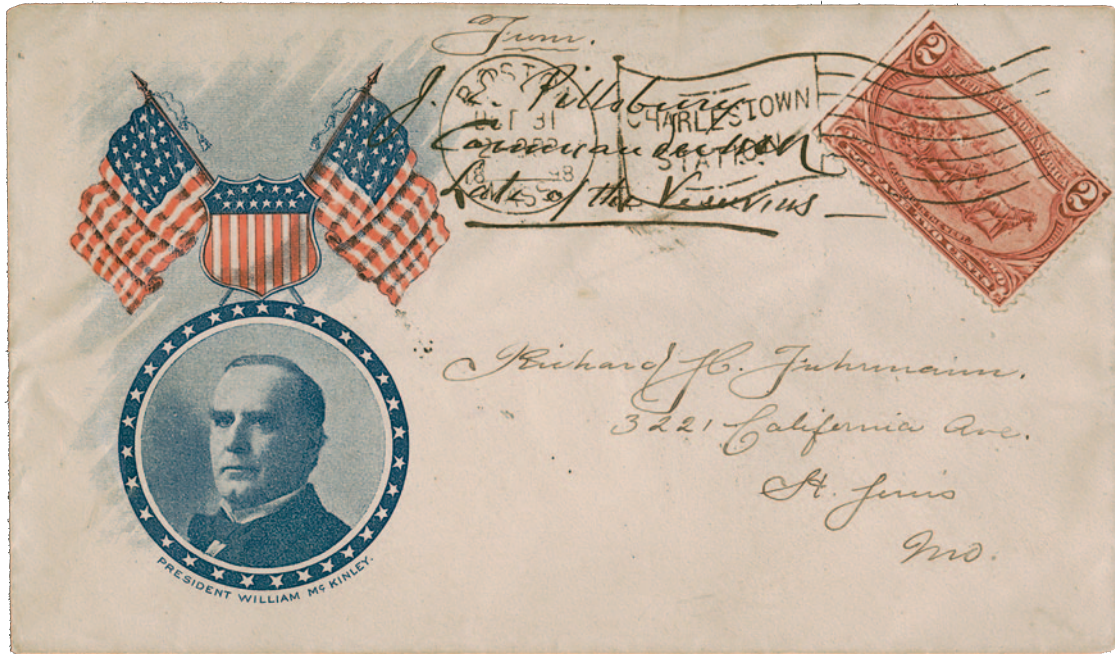 From.
J. E. Pillsbury
Commander USN
Late of the Vesuvius
BOSTON
OCT 31
1898
MASS.
CHARLESTOWN
STATION.
2
2
TWO CENTS
Richard H. Fuhrmann.
3221 California Ave.
St. Louis
Mo.
PRESIDENT WILLIAM McKINLEY.